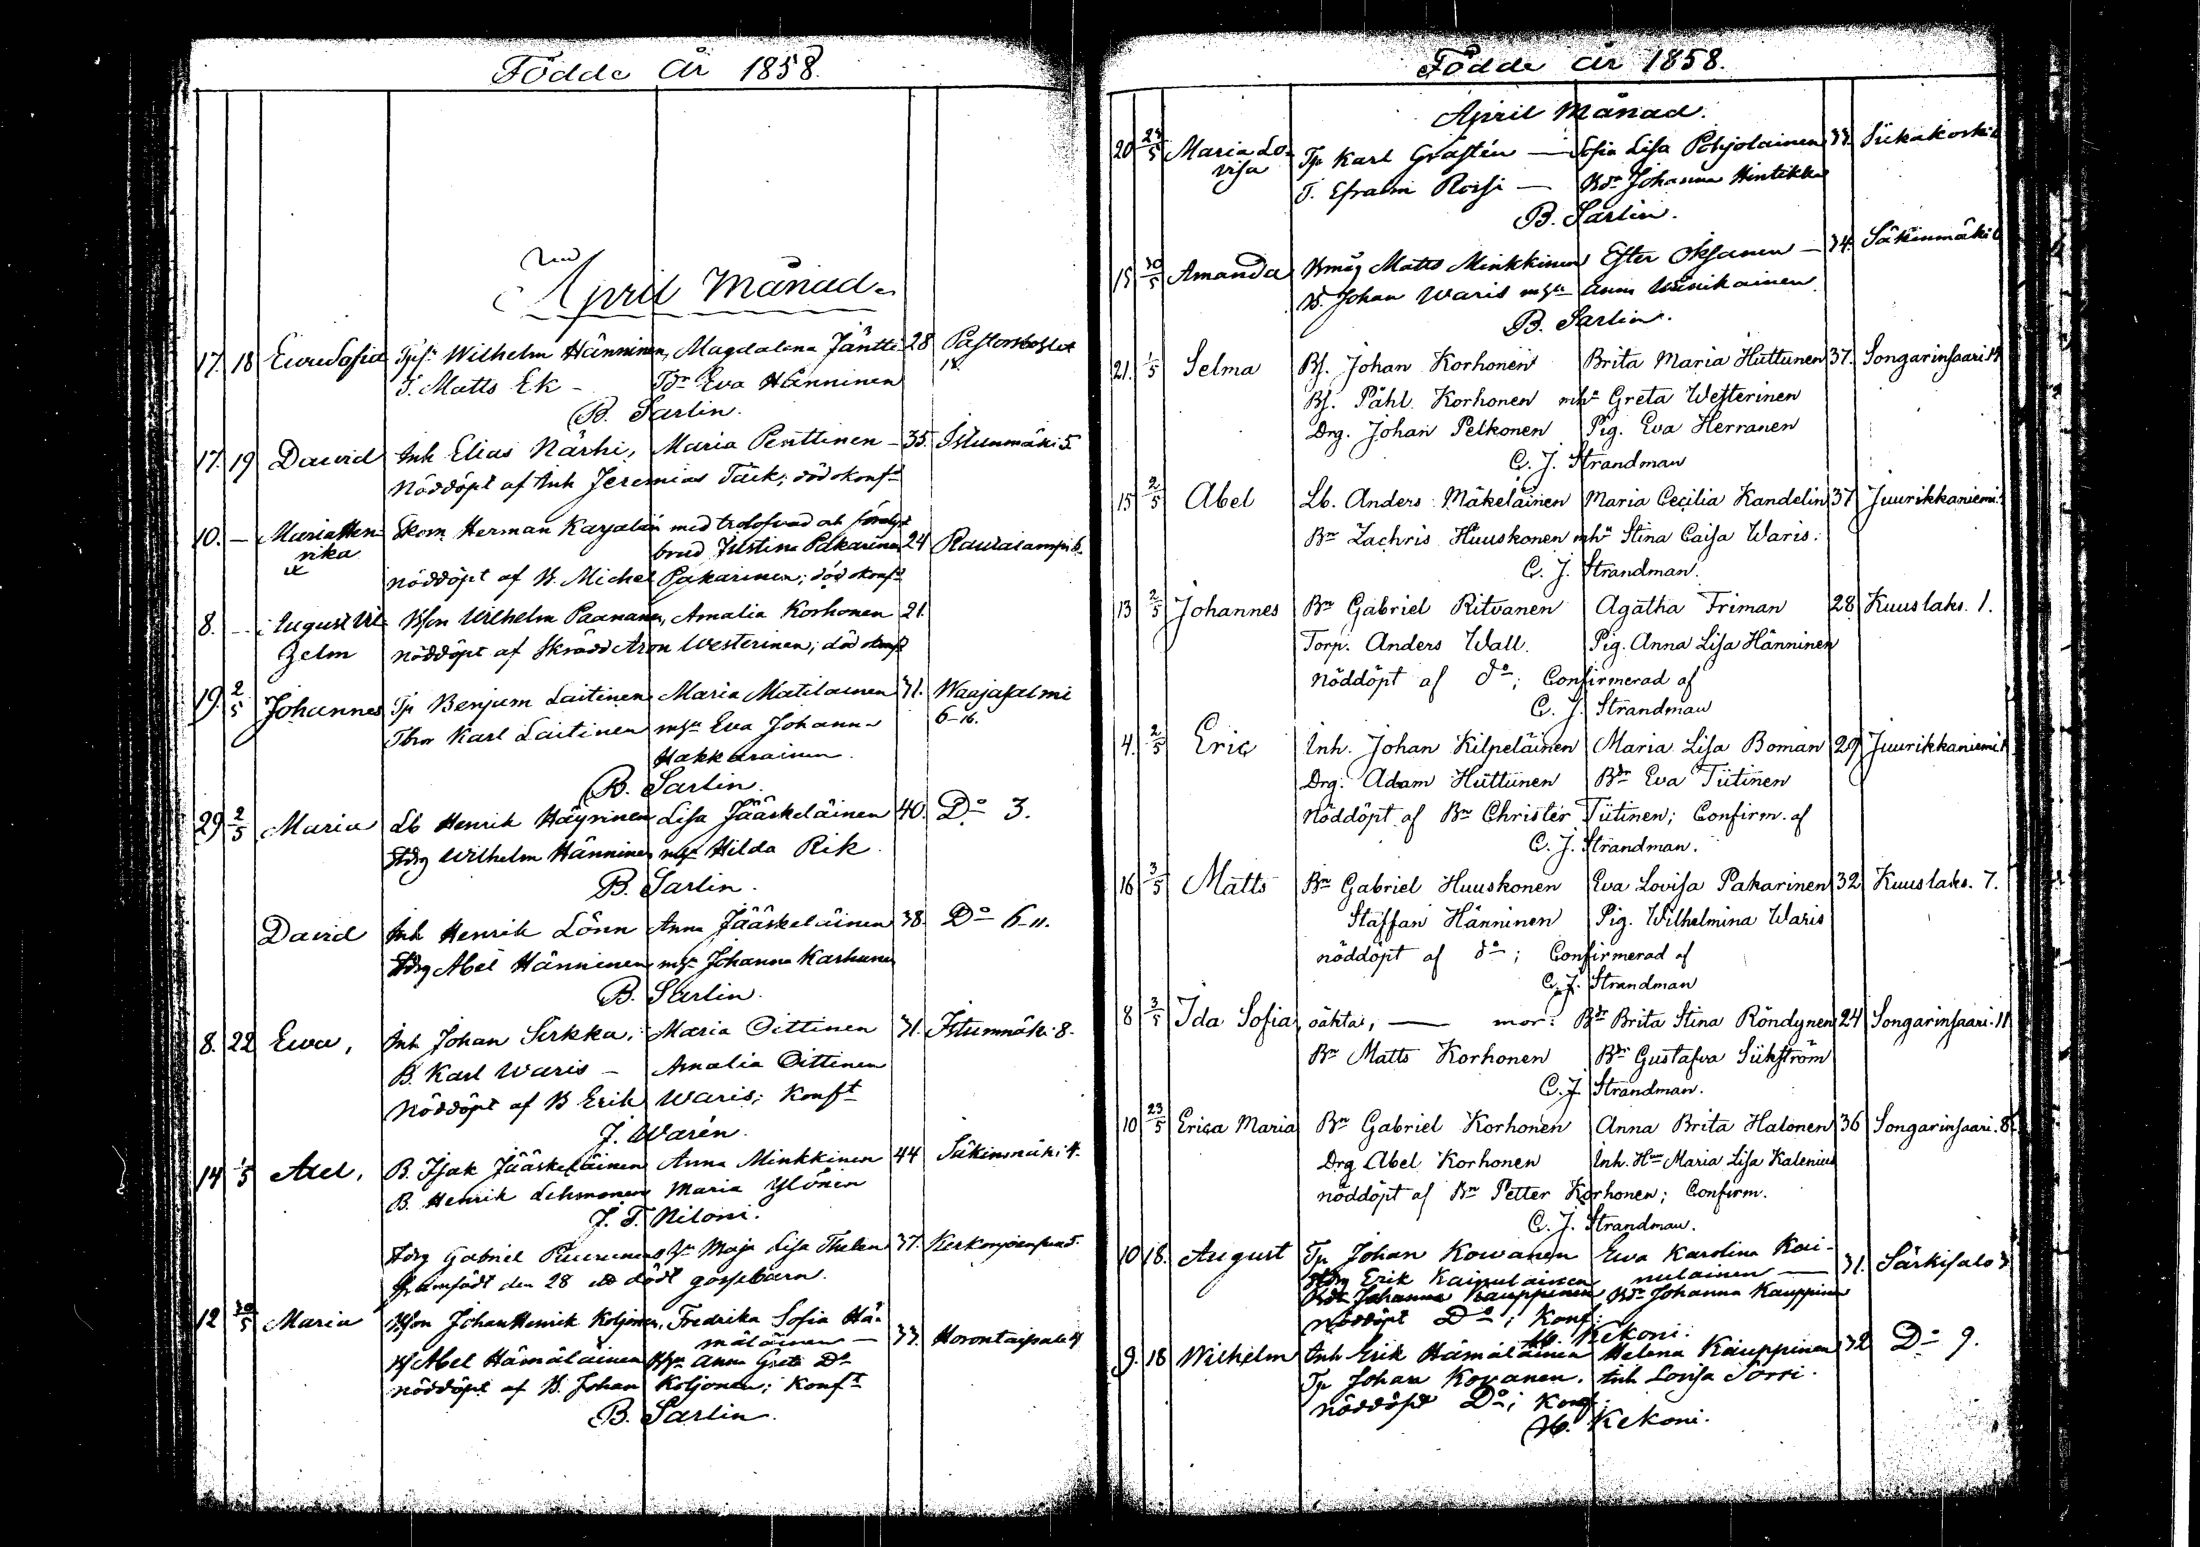 Födde år 1858.
April Månad
17. 18 Eva Sofia Wilhelm Hänninen, Magdalena Jäntti 28 Pastorsbostet
J. Matts Ek - Eva Hänninen
B. Sarlin.
17. 19 David Inh Elias Närhi, Maria Penttinen - 35. Istunmäki 5.
Nöddöpt af Inh Jeremias Täck; död okonft
10. - Maria Hen- Herman Karjalain med trolofvad och
rika brud Justina Pakarinen 24 Rautalampi 6.
nöddöpt af B. Michel Pakarinen; död okonft
8. - August Vil- Bson Wilhelm Paananen, Amalia Korhonen 21.
helm nöddöpt af Skrädd Aron Westerinen; död okonft
19. 2/5 Johannes Tp Benjam Laitinen Maria Matilainen 31. Waajasalmi
Tbror Karl Laitinen Eva Johanna 6-16.
Hakkarainen.
B. Sarlin.
29 2/5 Maria Lb Henrik Häyrinen Lisa Jääskeläinen 40. Do 3.
Wilhelm Hänninen Hilda Rik
B. Sarlin.
David Inh Henrik Lönn Anna Jääskeläinen 38. Do 6-11.
Abel Hänninen Johanna Karhunen
B. Sarlin.
8. 22 Ewa, Inh Johan Sirkka, Maria Oittinen 31. Istunmäki 8.
B. Karl Waris - Amalia Oittinen
Nöddöpt af B Erik Waris; Konft
J. Warén.
14 1/5 Axel, B. Isak Jääskeläinen Anna Minkkinen 44 Säkinmäki 4.
B. Henrik Lehmonen Maria Ylönen
J. F. Niloni.
Gabriel Puurunens Maja Lisa Thelen 37.
framfödt den 28 ett dödt gossebarn.
12 30/5 Maria Bson Johan Henrik Koljonen, Fredrika Sofia Hä-
mäläinen - 33. Horontaipale 4
Abel Hämäläinen Anna Greta Do
nöddöpt af B. Johan Koljonen; Konft
B. Sarlin.
Födde år 1858.
April Månad.
20 Maria Lo- Tp Karl Grastén - Sofia Lisa Pohjolainen 33. Siikakoski
visa T. Efraim Rossi - Johanna Hintikka
B. Sarlin.
15 30/5 Amanda Bmåg Matts Minkkinen Ester Oksanen - 34. Säkinmäki
B. Johan Waris Anna Wänikainen
B. Sarlin.
21. 1/5 Selma Bf. Johan Korhonen Brita Maria Huttunen 37. Songarinsaari
Bf. Påhl Korhonen mhu Greta Westerinen
Drg. Johan Pelkonen Pig. Eva Herranen
C. J. Strandman
15 2/5 Abel Lb. Anders Mäkeläinen Maria Cecilia Kandelin 37 Juurikkaniemi
Bn Zachris Huuskonen mhu Stina Caisa Waris.
C. J. Strandman.
13 2/5 Johannes Bn Gabriel Ritvanen Agatha Friman 28 Kuuslaks. 1.
Torp. Anders Wall. Pig. Anna Lisa Hänninen
nöddöpt af do; Confirmerad af
C. J. Strandman
4. 2/5 Eric Inh. Johan Kilpeläinen Maria Lisa Boman 29 Juurikkaniemi
Drg. Adam Huttunen Bdr Eva Tiitinen
nöddöpt af Bn Christer Tiitinen; Confirm. af
C. J. Strandman.
16 3/5 Matts Bn Gabriel Huuskonen Eva Lovisa Pakarinen 32 Kuuslaks. 7.
Staffan Hänninen Pig. Wilhelmina Waris
nöddöpt af do; Confirmerad af
C. J. Strandman
8 3/5 Ida Sofia, oäkta, - mor: Bdr Brita Stina Röndynen 24 Songarinsaari. 11
Bn Matts Korhonen Bdr Gustafva Siikström
C. J. Strandman.
10 23/5 Erica Maria Bn Gabriel Korhonen Anna Brita Halonen 36 Songarinsaari. 8.
Drg Abel Korhonen Inh. Hru Maria Lisa Kalenius
nöddöpt af Bn Petter Korhonen; Confirm.
C. J. Strandman.
10 18. August Tp Johan Kovanen Ewa Karolina Kai-
Erik Kainulainen nulainen - 31. Särkisalo 3
Johanna Kauppinen Johanna Kauppinen
nöddöpt Do; Konf.
Kekoni.
9. 18 Wilhelm Inh Erik Hämäläinen Helena Kauppinen 32 Do 9.
Tp Johan Kovanen. Inh Lovisa Sorri.
nöddöpt Do; Konf.
Kekoni.